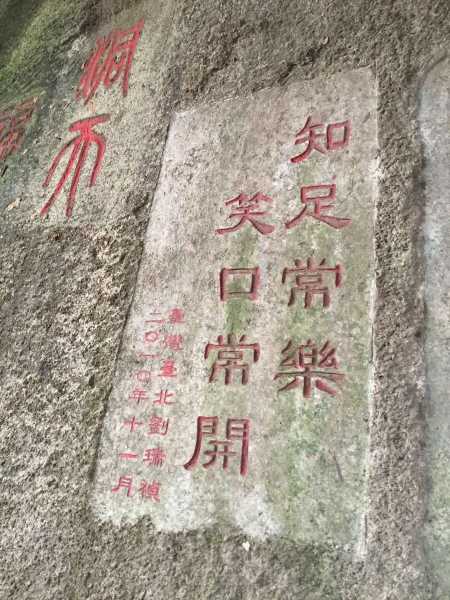 知足常樂
笑口常開
臺灣臺北劉瑞禎
二〇一〇年十一月
洞天